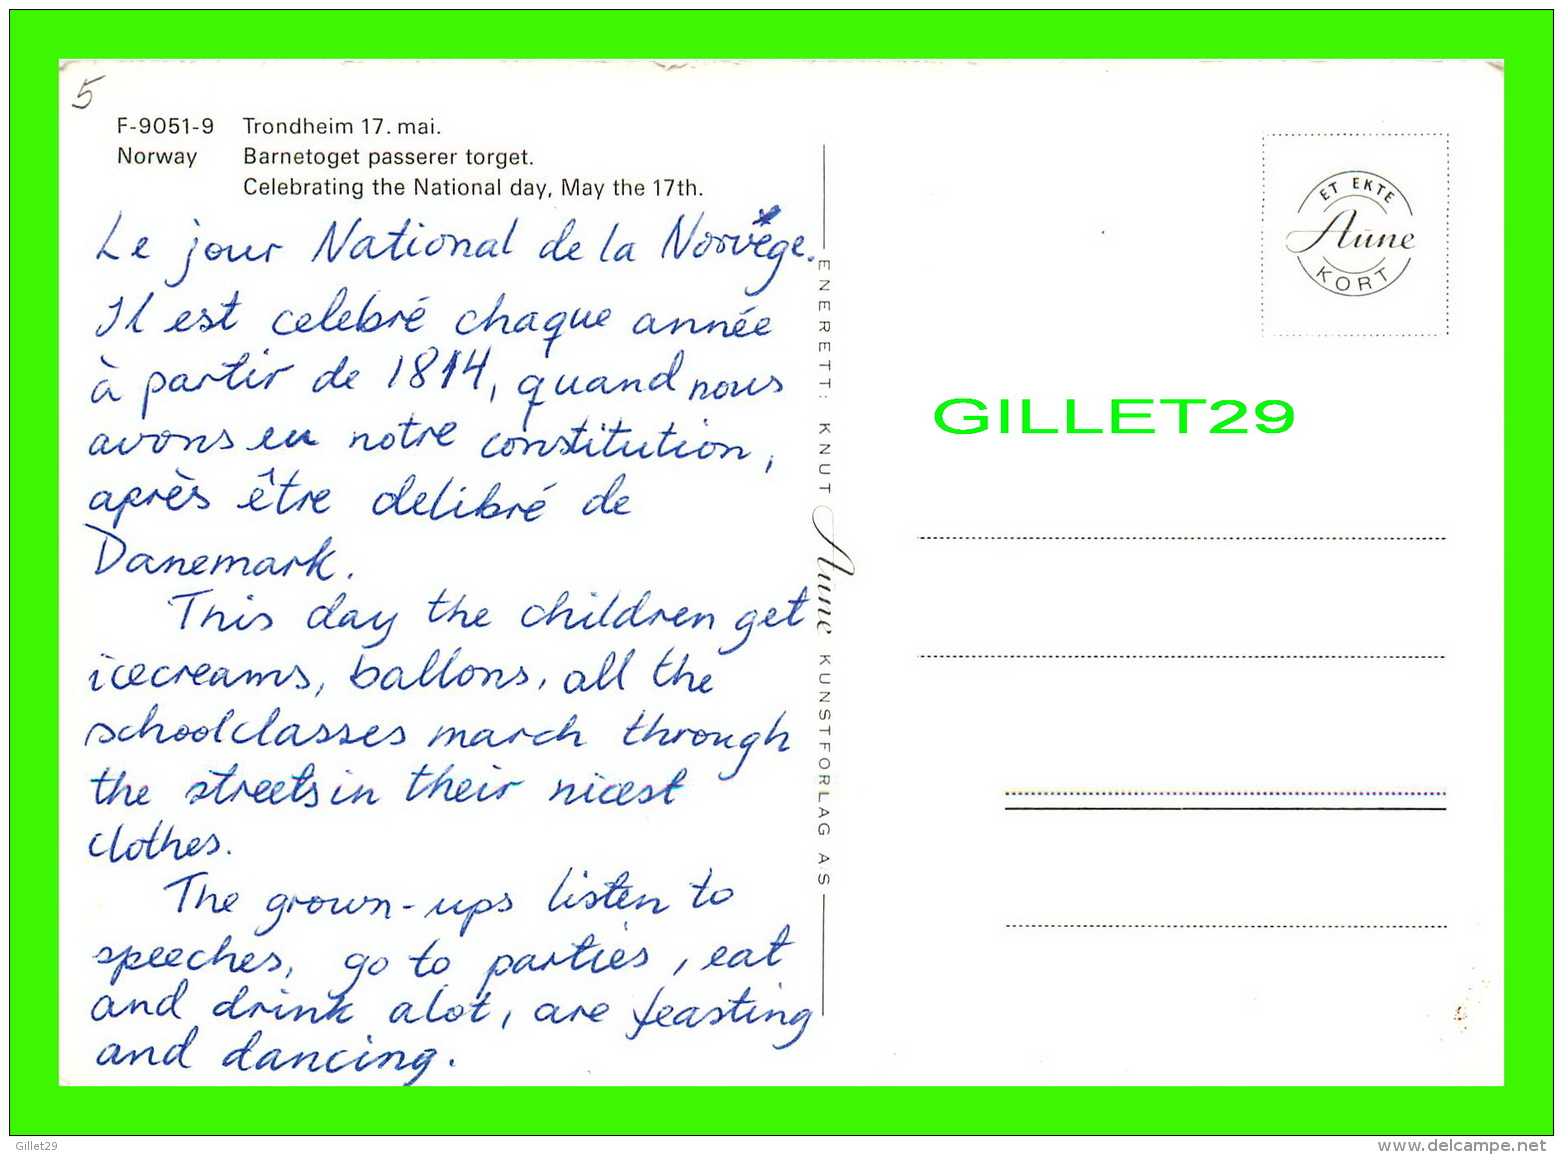 5
F-9051-9 Trondheim 17. mai.
Norway Barnetoget passerer torget.
Celebrating the National day, May the 17th.
Le jour National de la Norvège.
Il est celebré chaque année
à partir de 1814, quand nous
avons eu notre constitution,
après être delibré de
Danemark.
This day the children get
icecreams, ballons, all the
schoolclasses march through
the streets in their nicest
clothes.
The grown-ups listen to
speeches, go to parties, eat
and drink alot, are feasting
and dancing.
ENERETT: KNUT Aune KUNSTFORLAG A/S
ET EKTE
Aune
KORT
GILLET29
Gillet29
www.delcampe.net